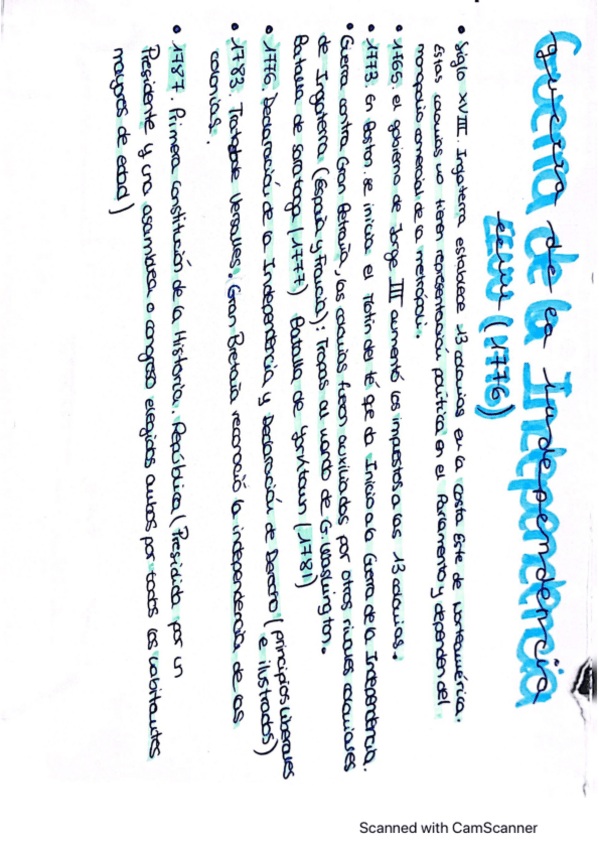 Guerra de la Independencia
guerra de la independencia
EEUU (1776)
• Siglo XVIII. Inglaterra establece 13 colonias en la costa Este de Norteamérica.
Estas colonias no tienen representación política en el Parlamento y dependen del
monopolio comercial de la metrópoli.
• 1765. el gobierno de Jorge III aumentó los impuestos a las 13 colonias.
• 1773. En Boston se inicia el Motín del té que da Inicio a la Guerra de la Independencia.
• Guerra contra Gran Bretaña, las colonias fueron auxiliadas por otros rivales coloniales
de Inglaterra (España y Francia): Tropas al mando de G. Washington.
Batalla de Saratoga (1777) Batalla de Yorktown (1781)
• 1776. Declaración de la Independencia y Declaración de Derecho (principios liberales
e ilustrados)
• 1783. Tratado de Versalles. Gran Bretaña reconoció la independencia de las
colonias.
• 1787. Primera constitución de la Historia. República (Presidida por un
Presidente y una asamblea o congreso elegidos ambos por todos los habitantes
mayores de edad)
Scanned with CamScanner